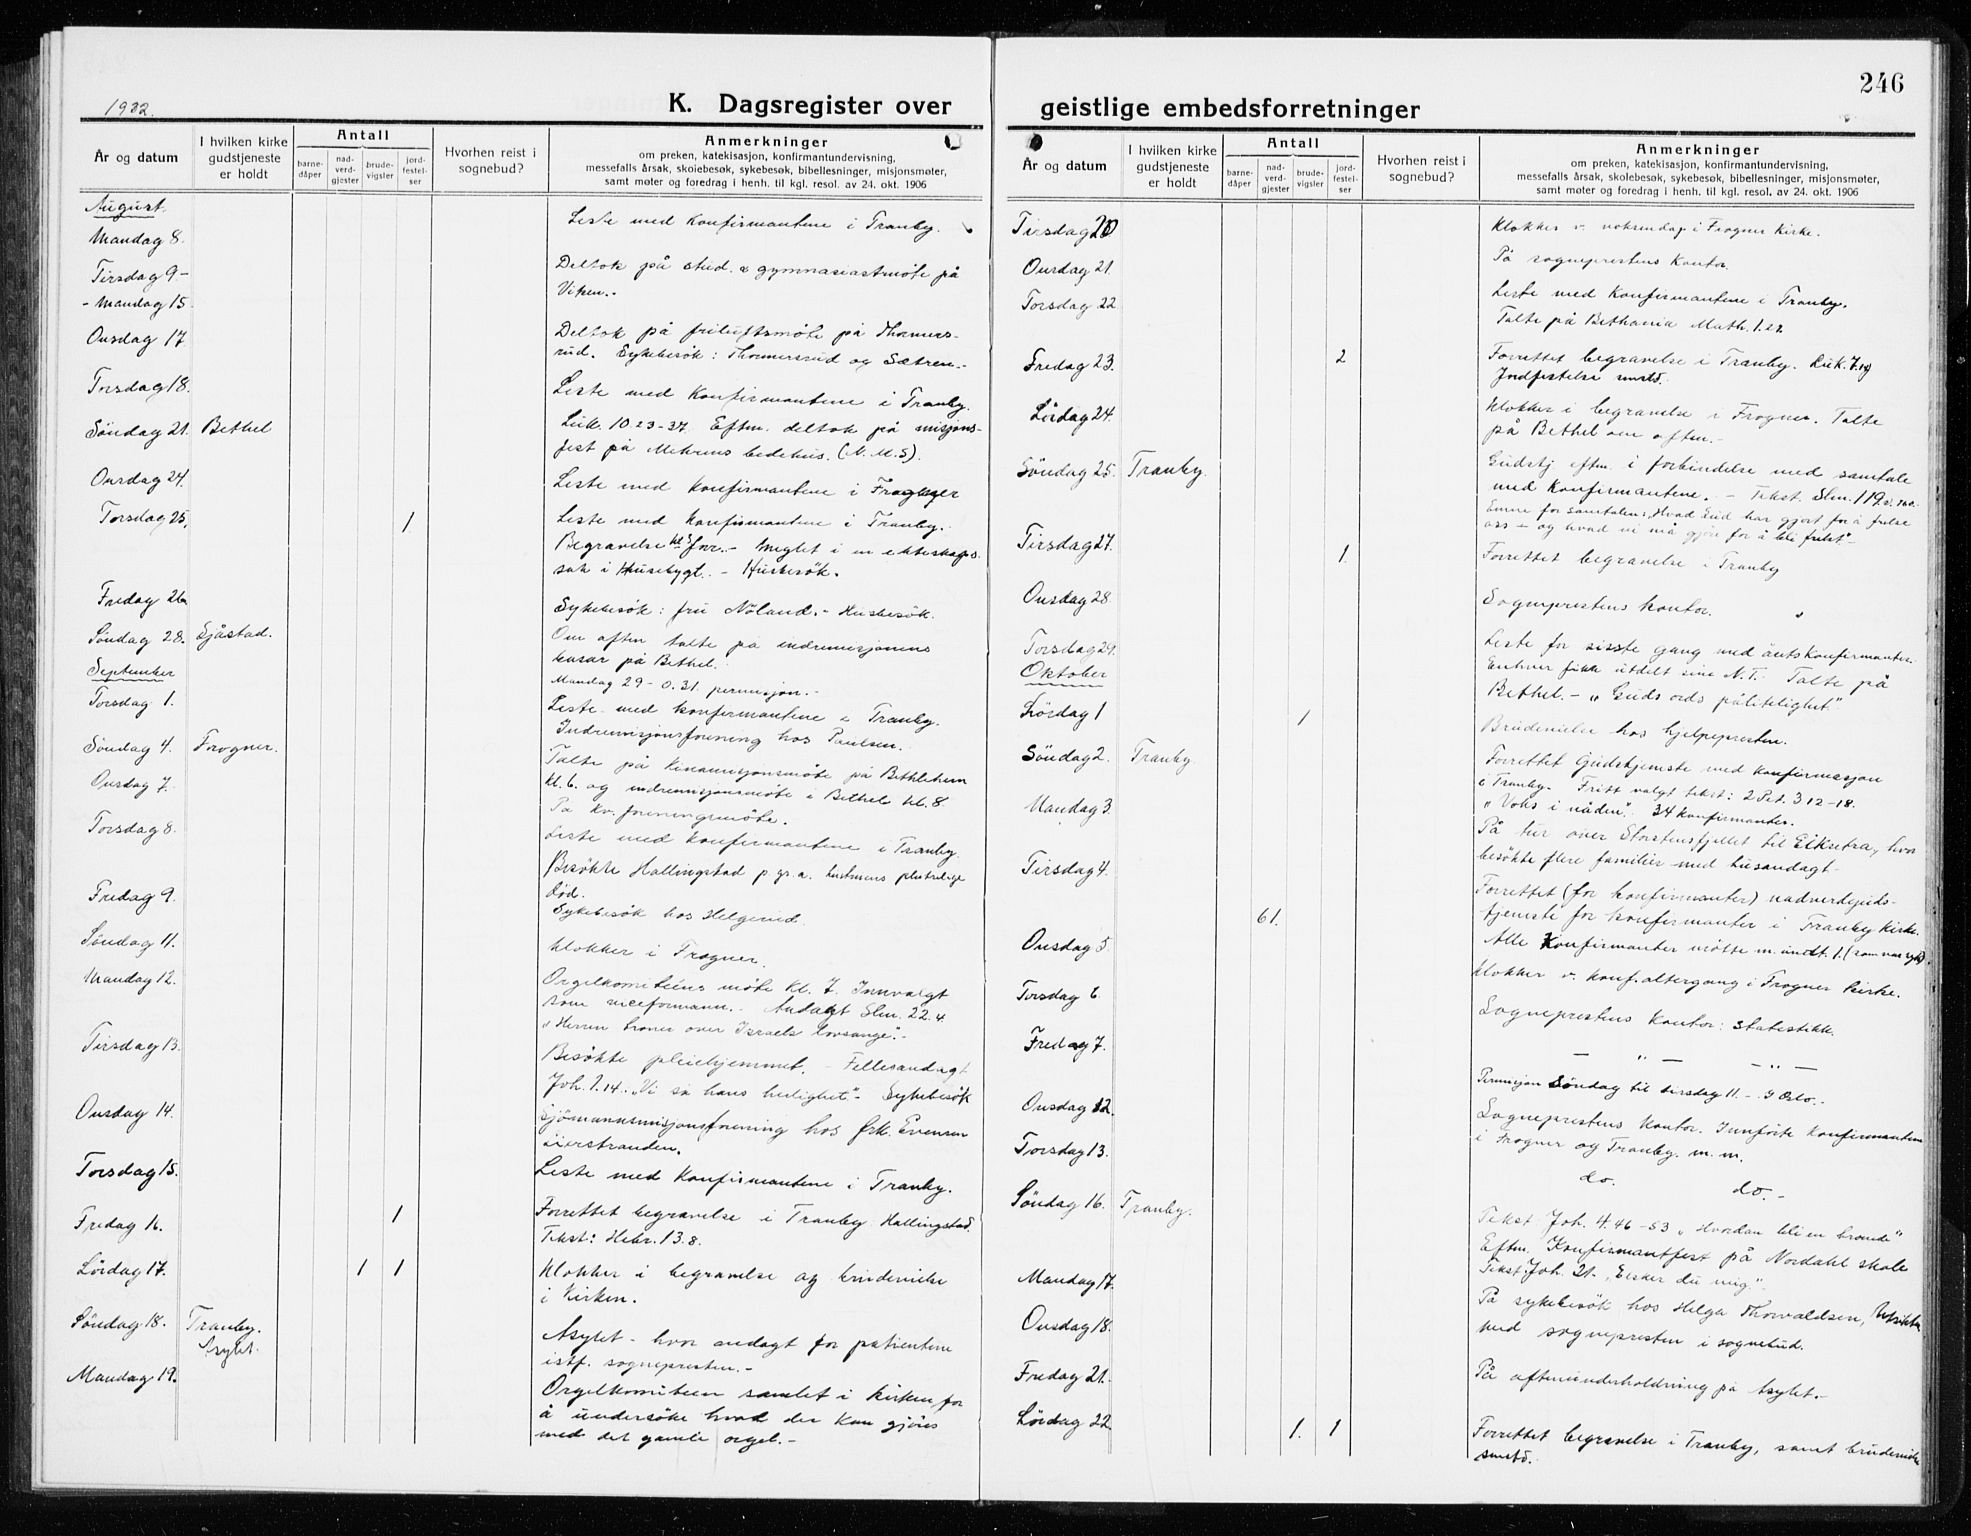 246
1932.
K. Dagsregister over geistlige embedsforretninger
År og datum
I hvilken kirke gudstjeneste er holdt
Antall
barne-dåper
nad-verd-gjester
brude-vigsler
jord-festel-ser
Hvorhen reist i sognebud?
Anmerkninger
om preken, katekisasjon, konfirmantundervisning,
messefalls årsak, skolebesøk, sykebesøk, bibellesninger, misjonsmøter,
samt møter og foredrag i henh. til kgl. resol. av 24. okt. 1906
August.
Mandag 8. Leste med konfirmantene i Tranby.
Tirsdag 9 - Deltok på stud. & gymnasiastmöte på
- Mandag 15. Viken.-
Onsdag 17 Deltok på friluftsmöte på Thomers-
rud. Sykebesök: Thomersrud og Sætren.-
Torsdag 18. Leste med konfirmantene i Tranby.
Söndag 21. Bethel Luk. 10.23-37. Eftm. deltok på misjons-
fest på Mehrens bedehus. (N.M.S).
Onsdag 24. Leste med konfirmantene i Frogner
Torsdag 25. 1 Leste med konfirmantene i Tranby.
Begravelse kl 5 fnr. - Meglet i en ekteskaps
sak i Husebygt. - Husbesök.
Fredag 26. Sykebesök: fru Nöland. - Husbesök.
Söndag 28. Sjåstad. Om aften talte på indremisjonens
basar på Bethel.
September Mandag 29 - o. 31. permisjon. -
Torsdag 1. Leste med konfirmantene i Tranby.
Indremisjonsforening hos Paulsen.
Söndag 4. Frogner. Talte på Kinamisjonsmöte på Bethlehem
kl. 6. og indremisjonsmöte i Bethel kl. 8
Onsdag 7. På kv. foreningsmöte.
Torsdag 8. Leste med konfirmantene i Tranby.
Besökte Hallingstad p gr. a. hustruens plutselige
död.
Fredag 9. Sykebesök hos Helgerud
Söndag 11. Klokker i Frogner.
Mandag 12. Orgelkomiteens möte kl. 7. Innvalgt
som viceformann. Andagt Slm. 22.4
"Herren troner over Israels lovsange". -
Tirsdag 13. Besökte pleiehjemmet. - Fellesandagt
Joh. 1.14. "Vi så hans herlighet" - Sykebesök
Onsdag 14. Sjömannsmisjonsforening hos frk. Evensen
Lierstranden.
Torsdag 15. Leste med konfirmantene i Tranby.
Fredag 16. 1 Forrettet begravelse i Tranby Hallingstad.
Tekst: Hebr. 13.8.
Lördag 17. 1 1 Klokker i begravelse og brudevielse
i kirken.
Söndag 18. Tranby. Asylet. Asylet - hvor andagt for patientene
istf. sognepresten. -
Mandag 19. Orgelkomiteen samlet i kirken for
å undersöke hvad der kan gjöres
med det gamle orgel. -
År og datum
I hvilken kirke gudstjeneste er holdt
Antall
barne-dåper
nad-verd-gjester
brude-vigsler
jord-festel-ser
Hvorhen reist i sognebud?
Anmerkninger
om preken, katekisasjon, konfirmantundervisning,
messefalls årsak, skolebesøk, sykebesøk, bibellesninger, misjonsmøter,
samt møter og foredrag i henh. til kgl. resol. av 24. okt. 1906
Tirsdag 20 Klokker v. voksendåp i Frogner kirke.
Onsdag 21. På sogneprestens kontor.
Torsdag 22 Leste med konfirmantene i Tranby.
Talte på Bethania Math. 1.22.
Fredag 23. 2 Forrettet begravelse i Tranby. Luk. 7.
Jordfestelse smsts.
Lördag 24. Klokker i begravelse i Frogner. Talte
på Bethel om aften. -
Söndag 25. Tranby. Gudstj. eftm. i forbindelse med samtale
med konfirmantene. - Tekst. Slm. 119
Emne for samtalen: "Hvad Gud har gjort for å frelse
oss - og hvad vi må gjöre for å bli frelst". -
Tirsdag 27. 1. Forrettet begravelse i Tranby
Onsdag 28. Sogneprestens kontor.
Torsdag 29. Leste for sisste gang med årets konfirmanter.
Oktober Enhver fikk utdelt sine N.T. Talte på
Bethel. - "Guds ords pålitelighet".
Lördag 1 1 Brudevielse hos hjelpepresten.
Söndag 2. Tranby. Forrettet Gudstjeneste med konfirmasjon
i Tranby. Fritt valgt tekst: 2 Pet. 3 12-18.
"Voks i nåden". 34 konfirmanter.
Mandag 3. På tur over Storstensfjellet til Eiksetra, hvor
besökte flere familier med husandagt.
Tirsdag 4. 61. Forrettet (for konfirmanter) nadverdguds-
tjeneste for konfirmanter i Tranby kirke.
Alle konfirmanter mötte m. undt. 1. (som var syk).
Onsdag 5 Klokker v. konf. altergang i Frogner kirke.
Torsdag 6. Sogneprestens kontor: statistikk.
Fredag 7. - " - - " -
Permisjon Söndag til tirsdag 11. - i Oslo. -
Onsdag 12. Sogneprestens kontor. Innförte konfirmanten
i Frogner og Tranby. m. m.
Torsdag 13. do. do. -
Söndag 16. Tranby. Tekst Joh. 4.46-53 "Hvordan bli en troende"
Eftm. Konfirmantfest på Nordahl skole
Tekst: Joh. 21. "Elsker du mig".
Mandag 17. På sykebesök hos Helga Thorvaldsen,
Onsdag 18. Med sognepresten i sognebud.
Fredag 21. På aftenunderholdning på Asylet. -
Lördag 22. 1. 1 Forrettet begravelse i Tranby, samt brudevielse
smsts.